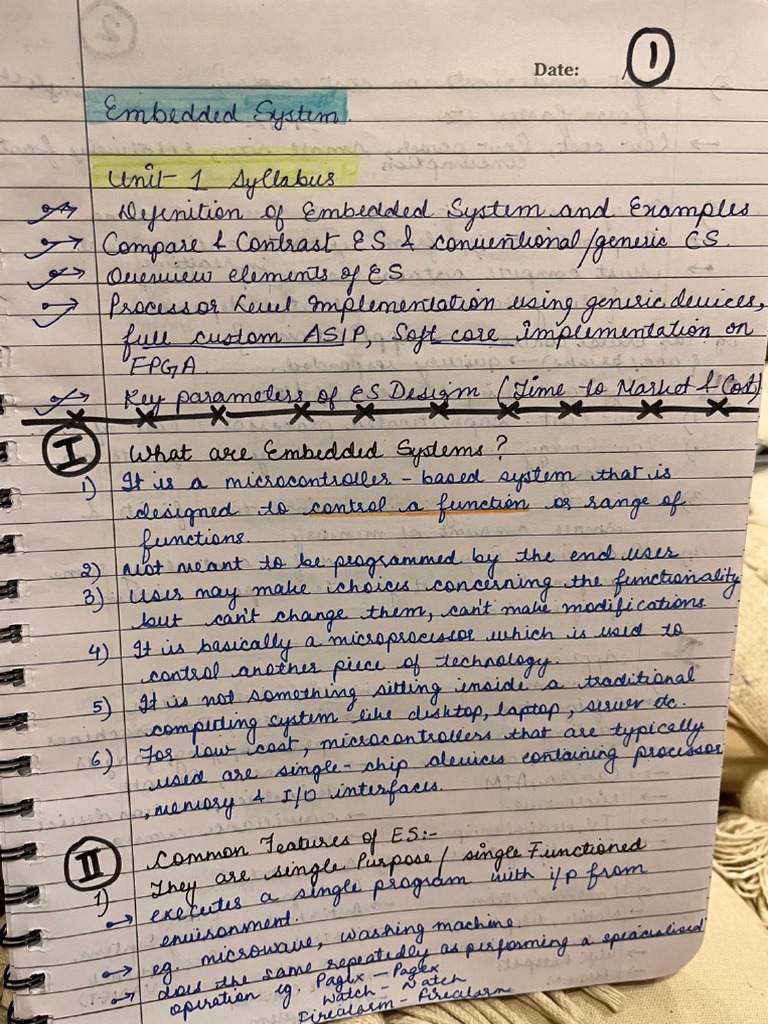 Date: 1
Embedded System.
Unit-1 Syllabus
Definition of Embedded System and Examples
Compare & Contrast ES & conventional/generic CS.
Overview elements of ES
Processor Level Implementation using generic devices,
full custom ASIP, Soft core implementation on
FPGA.
Key parameters of ES Design (Time to Market & Cost)
I What are Embedded Systems?
1) It is a microcontroller-based system that is
designed to control a function or range of
functions.
2) Not meant to be programmed by the end user
3) User may make choices concerning the functionality
but can't change them, can't make modifications.
4) It is basically a microprocessor which is used to
control another piece of technology.
5) It is not something sitting inside a traditional
computing system like desktop, laptop, server etc.
6) For low cost, microcontrollers that are typically
used are single-chip devices containing processor
, memory & I/O interfaces.
II Common Features of ES:-
1) They are single Purpose / single Functioned
→ executes a single program with i/p from
environment.
→ eg. microwave, washing machine.
→ does the same repeatedly as performing a speacialised
operation eg. Pagex - Pagex
Watch - Watch
Firealarm - Firealarm